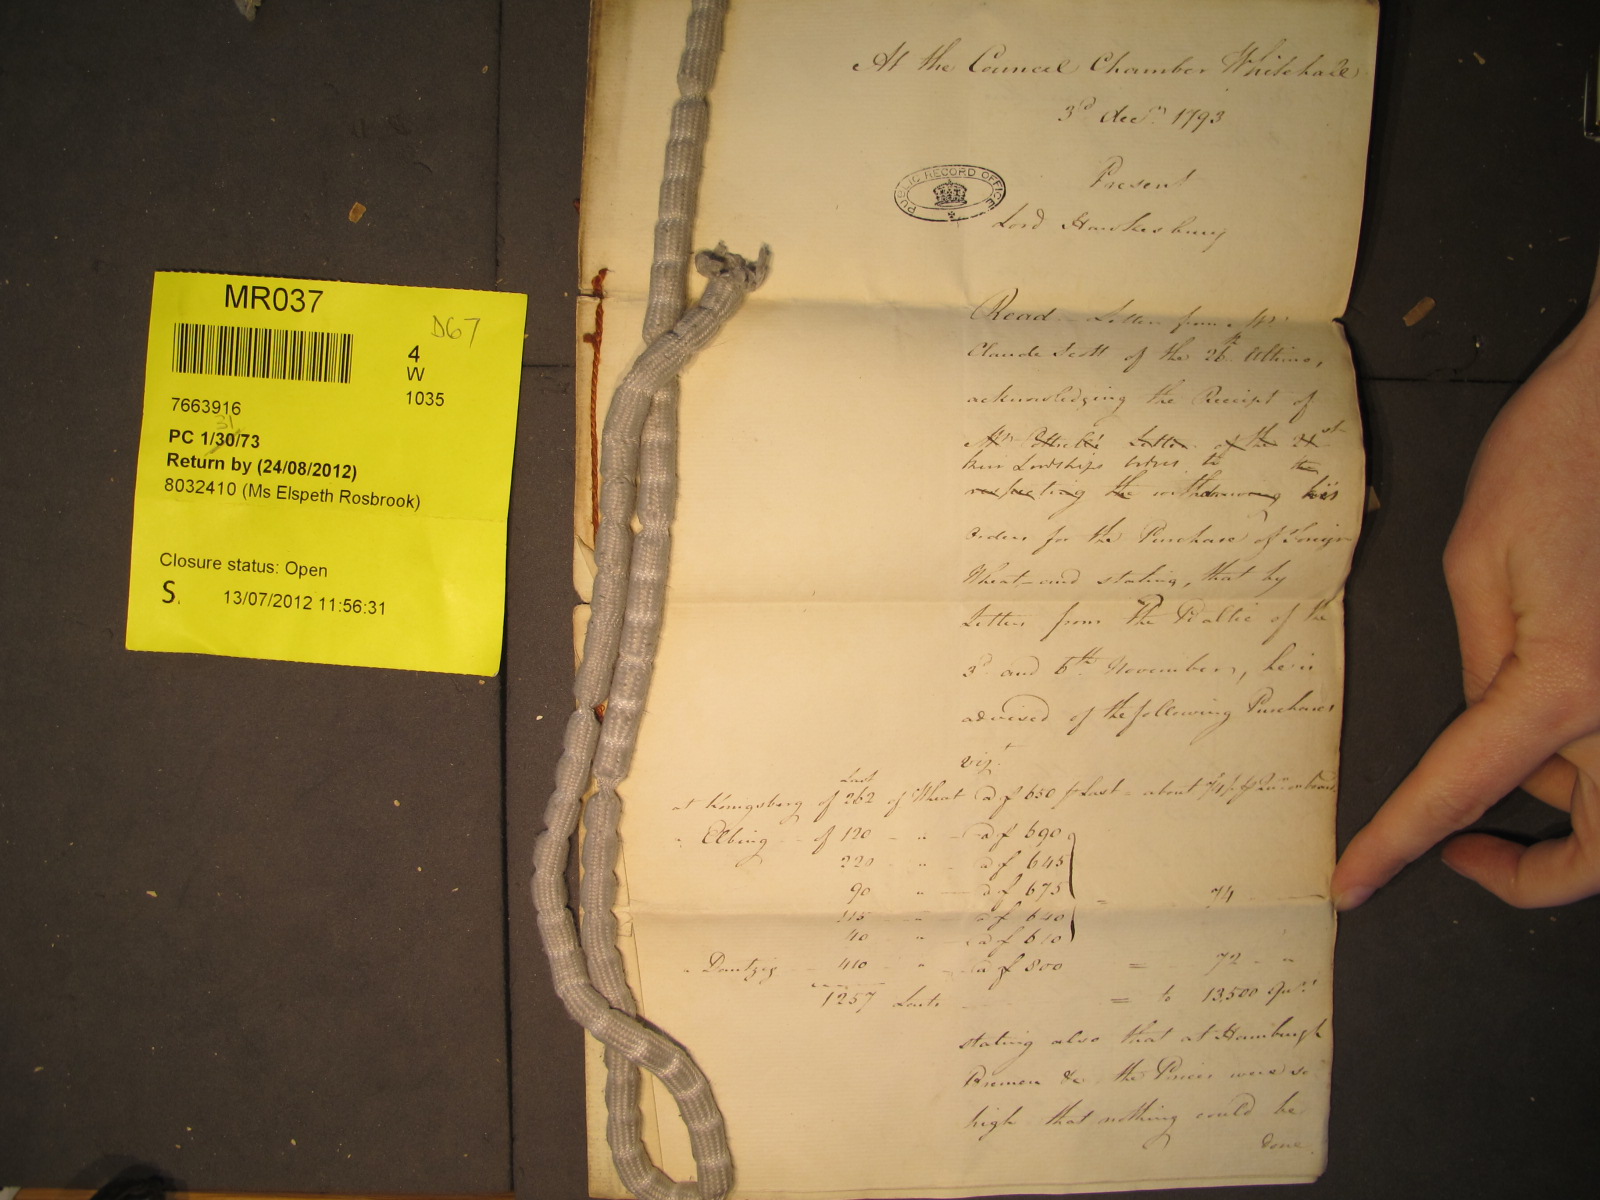 MR037
D67
4
W
1035
7663916
31
PC 1/30/73
Return by (24/08/2012)
8032410 (Ms Elspeth Rosbrook)
Closure status: Open
S. 13/07/2012 11:56:31
At the Council Chamber Whitehall
3d Decr. 1793
PUBLIC RECORD OFFICE
Present
Lord Hawkesbury
Read Letter from Mr
Claude Scott of the 26th Ultimo,
acknowledging the Receipt of
Mr Letter of the 21st
their Lordships orders to the
respecting the withdrawing his
Orders for the Purchase of Foreign
Wheat and stating, that by
Letters from The Baltic of the
3d and 6th November, he is
advised of the following Purchases
vizt.
Last
at Konigsberg of 262 of Wheat @ f 650 p Last = about 74/ p Qr on board
" Elbing of 120 " @ f 690
220 " @ f 645
90 " @ f 675 = 74
115 " @ f 640
40 " @ f 610
" Dantzig 410 " @ f 800 = 72 "
1257 Lasts = to 13,500 Qrs
stating also that at Hamburgh
Bremen &c the Prices were so
high that nothing could be
done